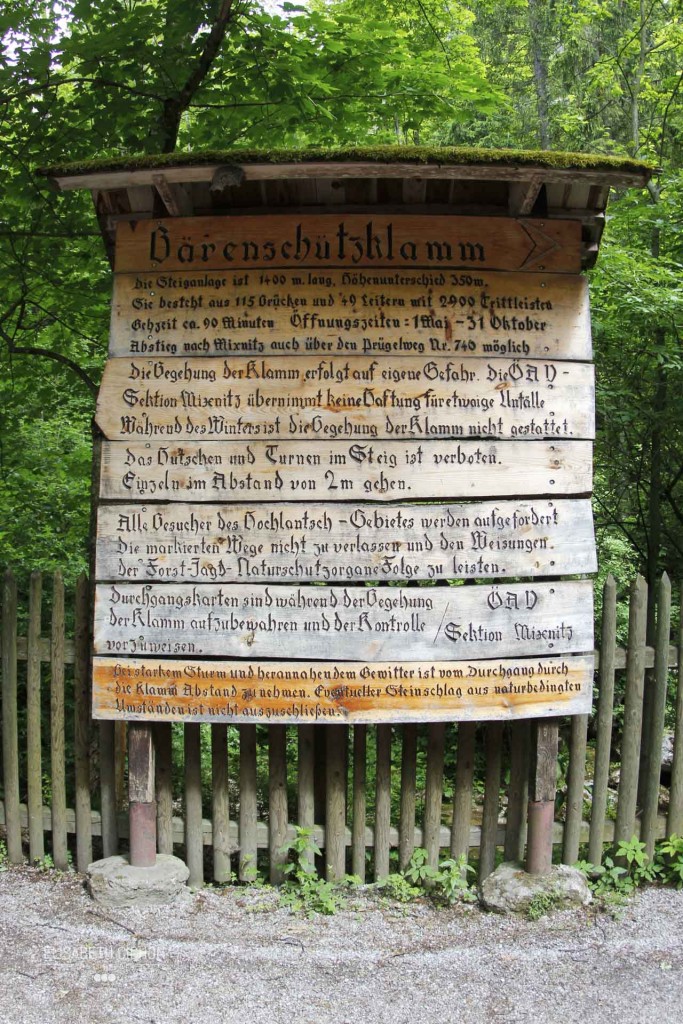 Bärenschützklamm
Die Steiganlage ist 1400 m. lang, Höhenunterschied 350m.
Sie besteht aus 115 Brücken und 49 Leitern mit 2900 Trittleisten
Gehzeit ca. 90 Minuten Öffnungszeiten: 1 Mai – 31 Oktober
Abstieg nach Mixnitz auch über den Prügelweg Nr. 746 möglich
Die Begehung der Klamm erfolgt auf eigene Gefahr. Die ÖAV –
Sektion Mixnitz übernimmt keine Haftung für etwaige Unfälle
Während des Winters ist die Begehung der Klamm nicht gestattet.
Das Hutschen und Turnen im Steig ist verboten.
Einzeln im Abstand von 2m gehen.
Alle Besucher des Hochlantsch – Gebietes werden aufgefordert
Die markierten Wege nicht zu verlassen und den Weisungen
der Forst-Jagd- Naturschutzorgane Folge zu leisten.
Durchgangskarten sind während der Begehung
der Klamm aufzubewahren und der Kontrolle
vorzuweisen.
ÖAV
/ Sektion Mixnitz
Bei starkem Sturm und herannahendem Gewitter ist vom Durchgang durch
die Klamm Abstand zu nehmen. Eventueller Steinschlag aus naturbedingten
Umständen ist nicht auszuschließen.